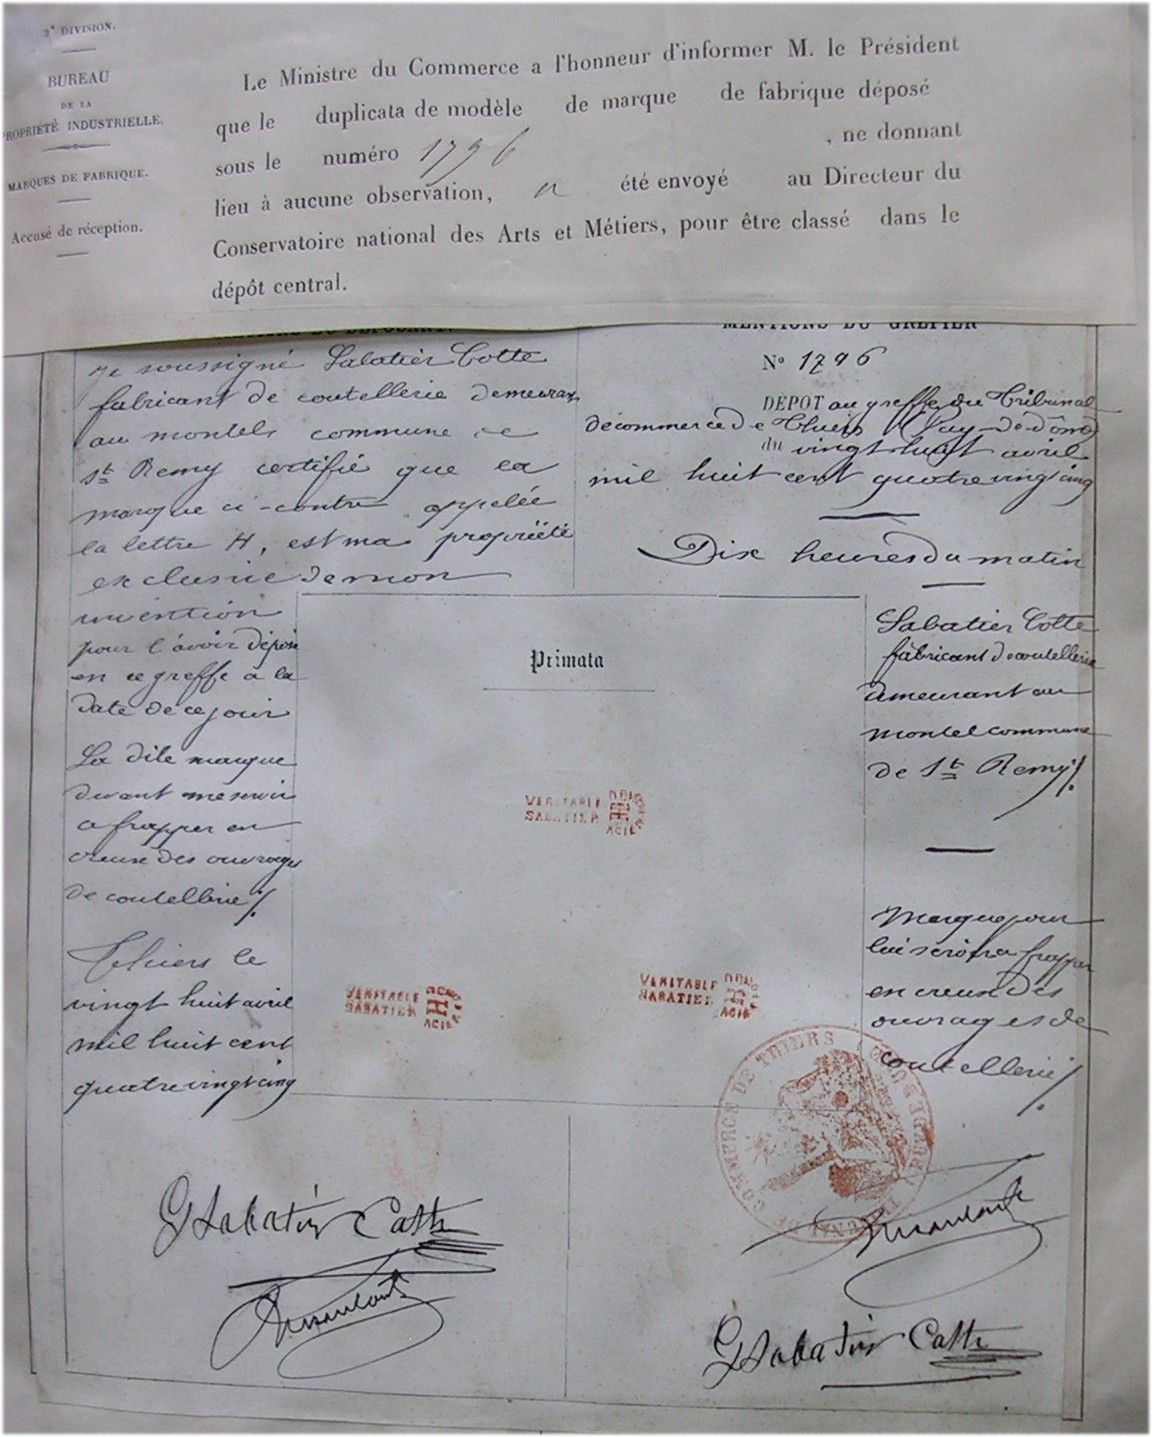 2e DIVISION.
BUREAU
DE LA
PROPRIÉTÉ INDUSTRIELLE.
MARQUES DE FABRIQUE.
Accusé de réception.
Le Ministre du Commerce a l'honneur d'informer M. le Président
que le duplicata de modèle de marque de fabrique déposé
sous le numéro 1796 , ne donnant
lieu à aucune observation, a été envoyé au Directeur du
Conservatoire national des Arts et Métiers, pour être classé dans le
dépôt central.
DU DÉPOSANT.
je soussigné Sabatier Cotte
fabricant de coutellerie demeurant
au montel, commune de
St Remy certifie que la
marque ci-contre appelée
la lettre H, est ma propriété
exclusive de mon
invention
pour l'avoir déposée
en ce greffe à la
date de ce jour
La dite marque
devant me servir
a frapper en
creux des ouvrages
de coutellerie/.
Thiers le
vingt huit avril
mil huit cent
quatre vingt cinq
MENTIONS DU GREFFIER
No 1796
DÉPOT au greffe du Tribunal
de commerce de Thiers (Puy-de-dôme)
du vingt huit avril
mil huit cent quatre vingt cinq
Dix heures du matin
Sabatier Cotte
fabricant de coutellerie
demeurant au
montel commune
de St Remy/.
Marque pour
lui servir a frapper
en creux des
ouvrages de
coutellerie/.
Primata
VERITABLE
SABATIER
H
ACIE
VERITABLE
SABATIER
H
ACIE
VERITABLE
SABATIER
H
ACIE
TRIBUNAL DE COMMERCE DE THIERS
G Sabatier Cotte
G Sabatier Cotte